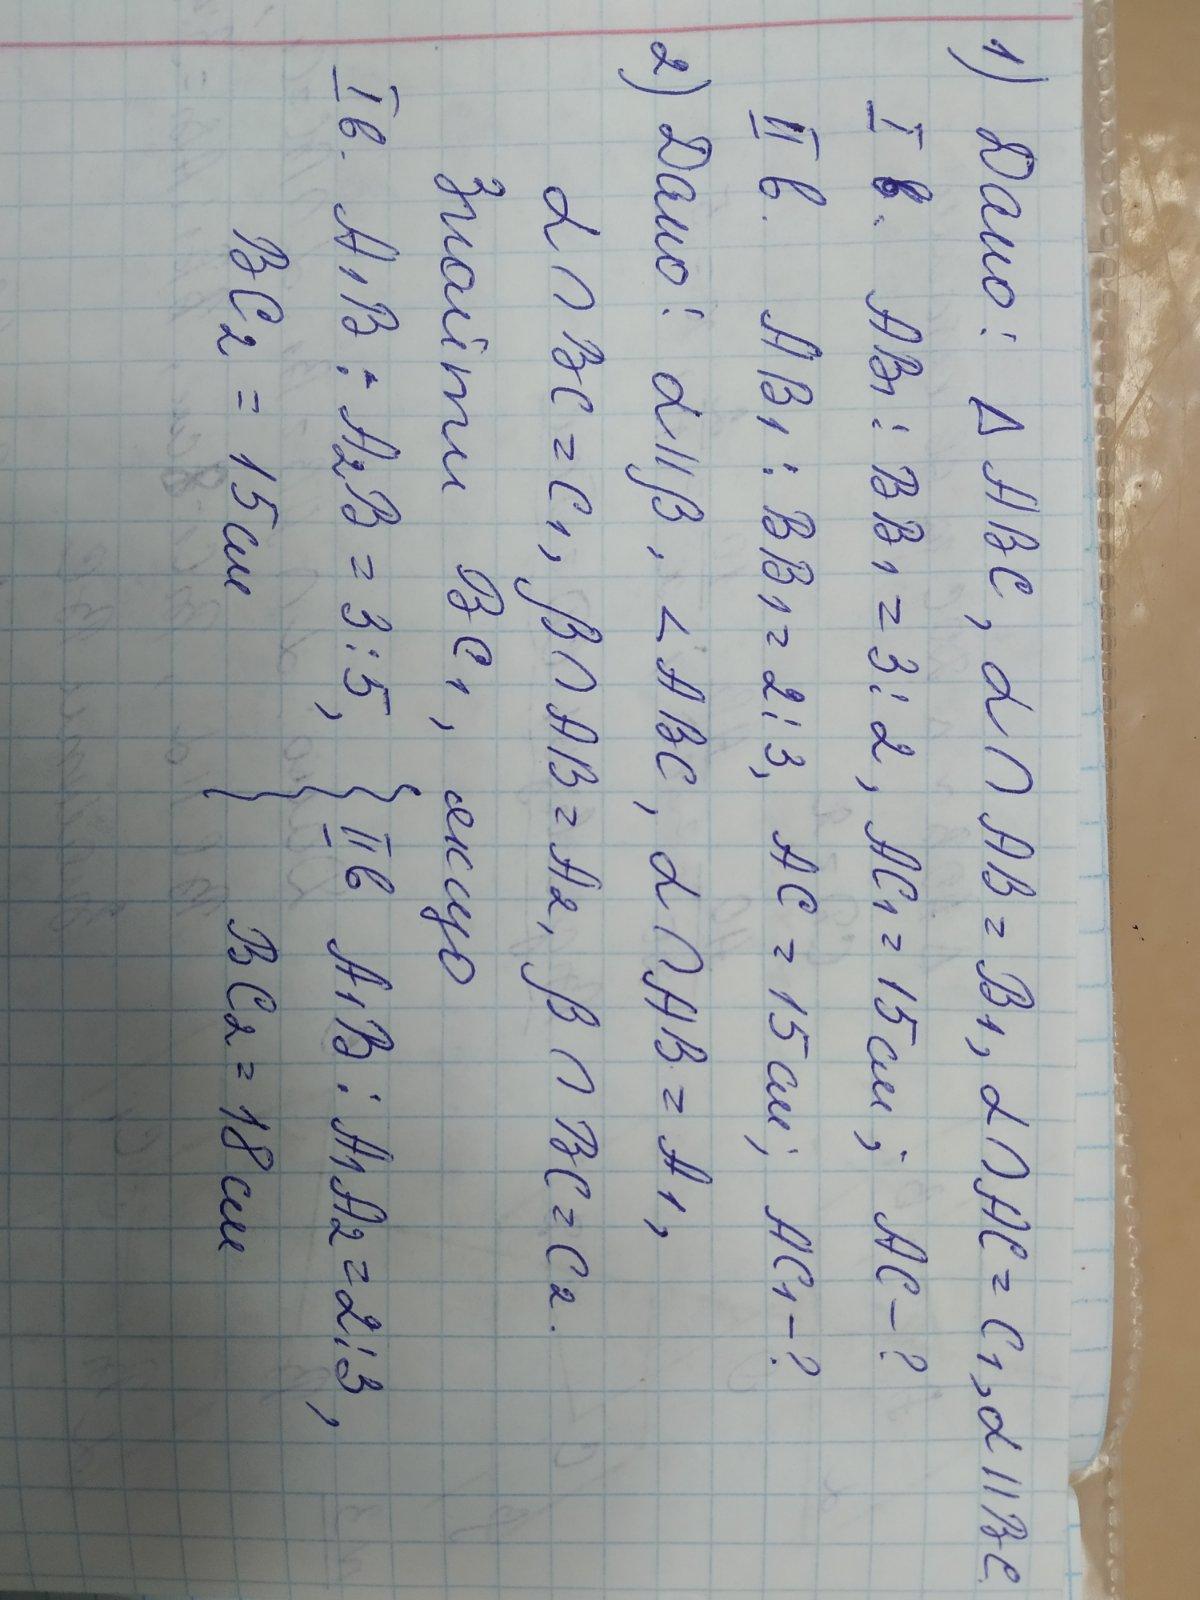 1) Дано: △ABC, α∩AB=B₁, α∩AC=C₁, α||BC
I в. AB₁:BB₁=3:2, AC₁=15см; AC-?
II в. AB₁:BB₁=2:3, AC=15см; AC₁-?
2) Дано: α||β, ∠ABC, α∩AB=A₁,
α∩BC=C₁, β∩AB=A₂, β∩BC=C₂.
Знайти BC₁, якщо
I в. A₁B:A₂B=3:5, } { II в A₁B:A₁A₂=2:3,
BC₂=15см } BC₂=18см